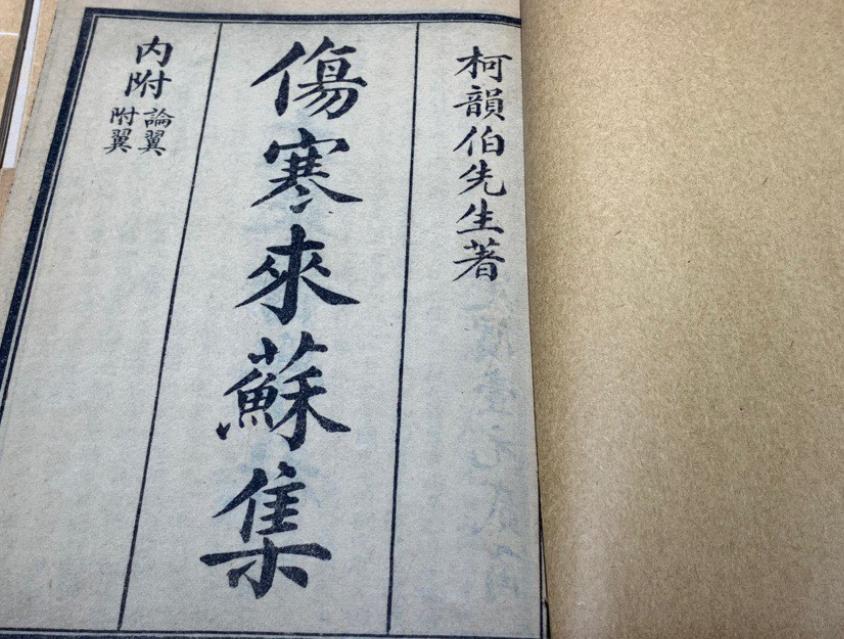 柯韻伯先生著
傷寒來蘇集
内附
論翼
附翼